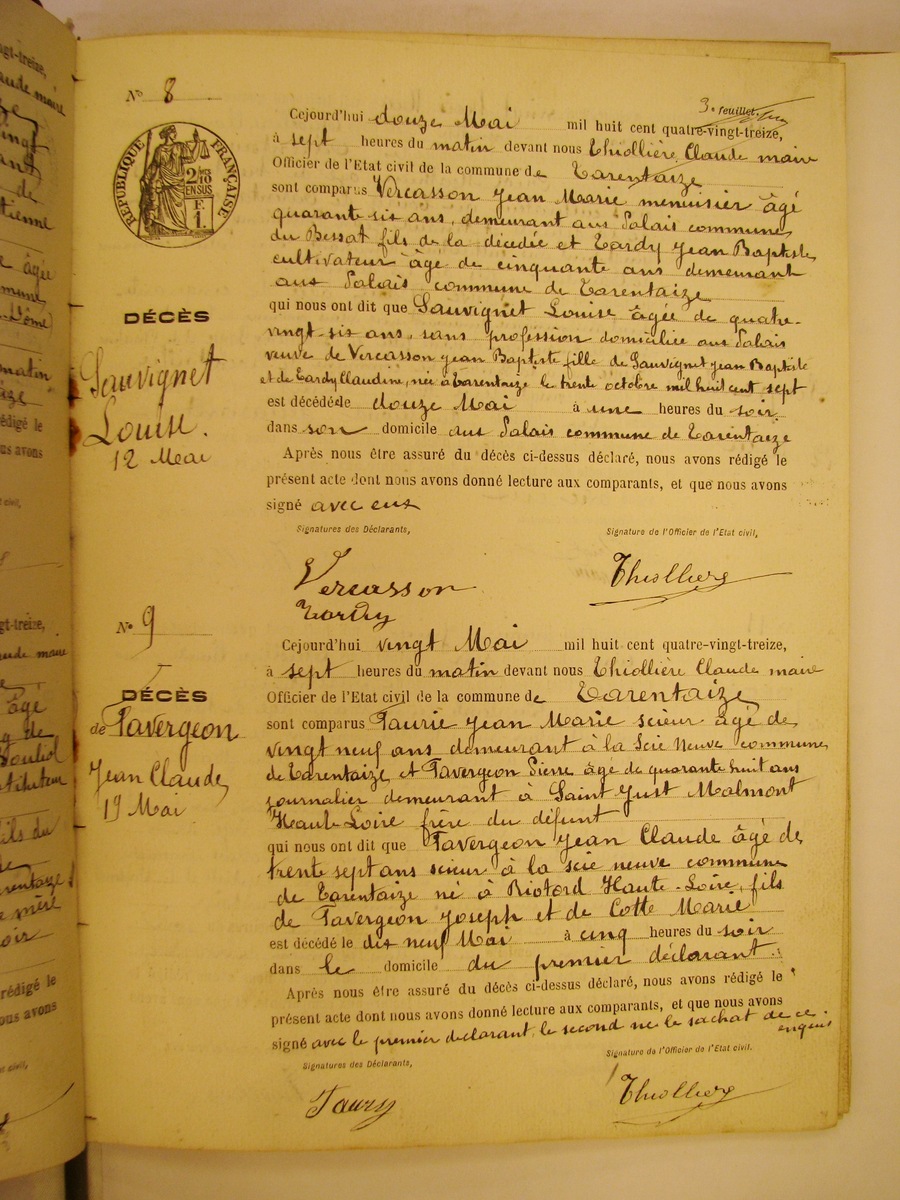 Nº 8
3e feuillet.
RÉPUBLIQUE FRANÇAISE
2/10
EN SUS
F.
1.
DÉCÈS
Sauvignet
Louise.
12 Mai
Cejourd'hui douze Mai mil huit cent quatre-vingt-treize,
à sept heures du matin devant nous Thiollière Claude maire
Officier de l'Etat civil de la commune de Tarentaize
sont comparus Vercasson Jean Marie menuisier âgé
quarante six ans, demeurant aux Palais commune
du Bessat fils de la décédée et Tardy Jean Baptiste
cultivateur âgé de cinquante ans demeurant
aux Palais commune de Tarentaize
qui nous ont dit que Sauvignet Louise âgée de quatre-
vingt-six ans, sans profession domiciliée aux Palais
veuve de Vercasson Jean Baptiste fille de Sauvignet Jean Baptiste
et de Tardy Claudine, née à Tarentaize le trente octobre mil huit cent sept
est décédée le douze Mai à une heures du soir
dans son domicile aux Palais commune de Tarentaize
Après nous être assuré du décès ci-dessus déclaré, nous avons rédigé le
présent acte dont nous avons donné lecture aux comparants, et que nous avons
signé avec eux
Signatures des Déclarants,
Signature de l'Officier de l'Etat civil,
Vercasson
Tardy
Thiolliere
Nº 9
DÉCÈS
de Favergeon
Jean Claude
19 Mai
Cejourd'hui vingt Mai mil huit cent quatre-vingt-treize,
à sept heures du matin devant nous Thiollière Claude maire
Officier de l'Etat civil de la commune de Tarentaize
sont comparus Faurie Jean Marie scieur âgé de
vingt neuf ans demeurant à la Scie Neuve commune
de Tarentaize et Favergeon Pierre âgé de quarante huit ans
journalier demeurant à Saint Just Malmont
Haute Loire frère du défunt
qui nous ont dit que Favergeon Jean Claude âgé de
trente sept ans scieur à la scie neuve commune
de Tarentaize né à Riotord Haute-Loire, fils
de Favergeon Joseph et de Cotte Marie
est décédé le dix neuf Mai à cinq heures du soir
dans le domicile du premier déclarant.
Après nous être assuré du décès ci-dessus déclaré, nous avons rédigé le
présent acte dont nous avons donné lecture aux comparants, et que nous avons
signé avec le premier déclarant, le second ne le sachat de ce
enquis.
Signatures des Déclarants,
Signature de l'Officier de l'Etat civil.
Faury
Thiolliere